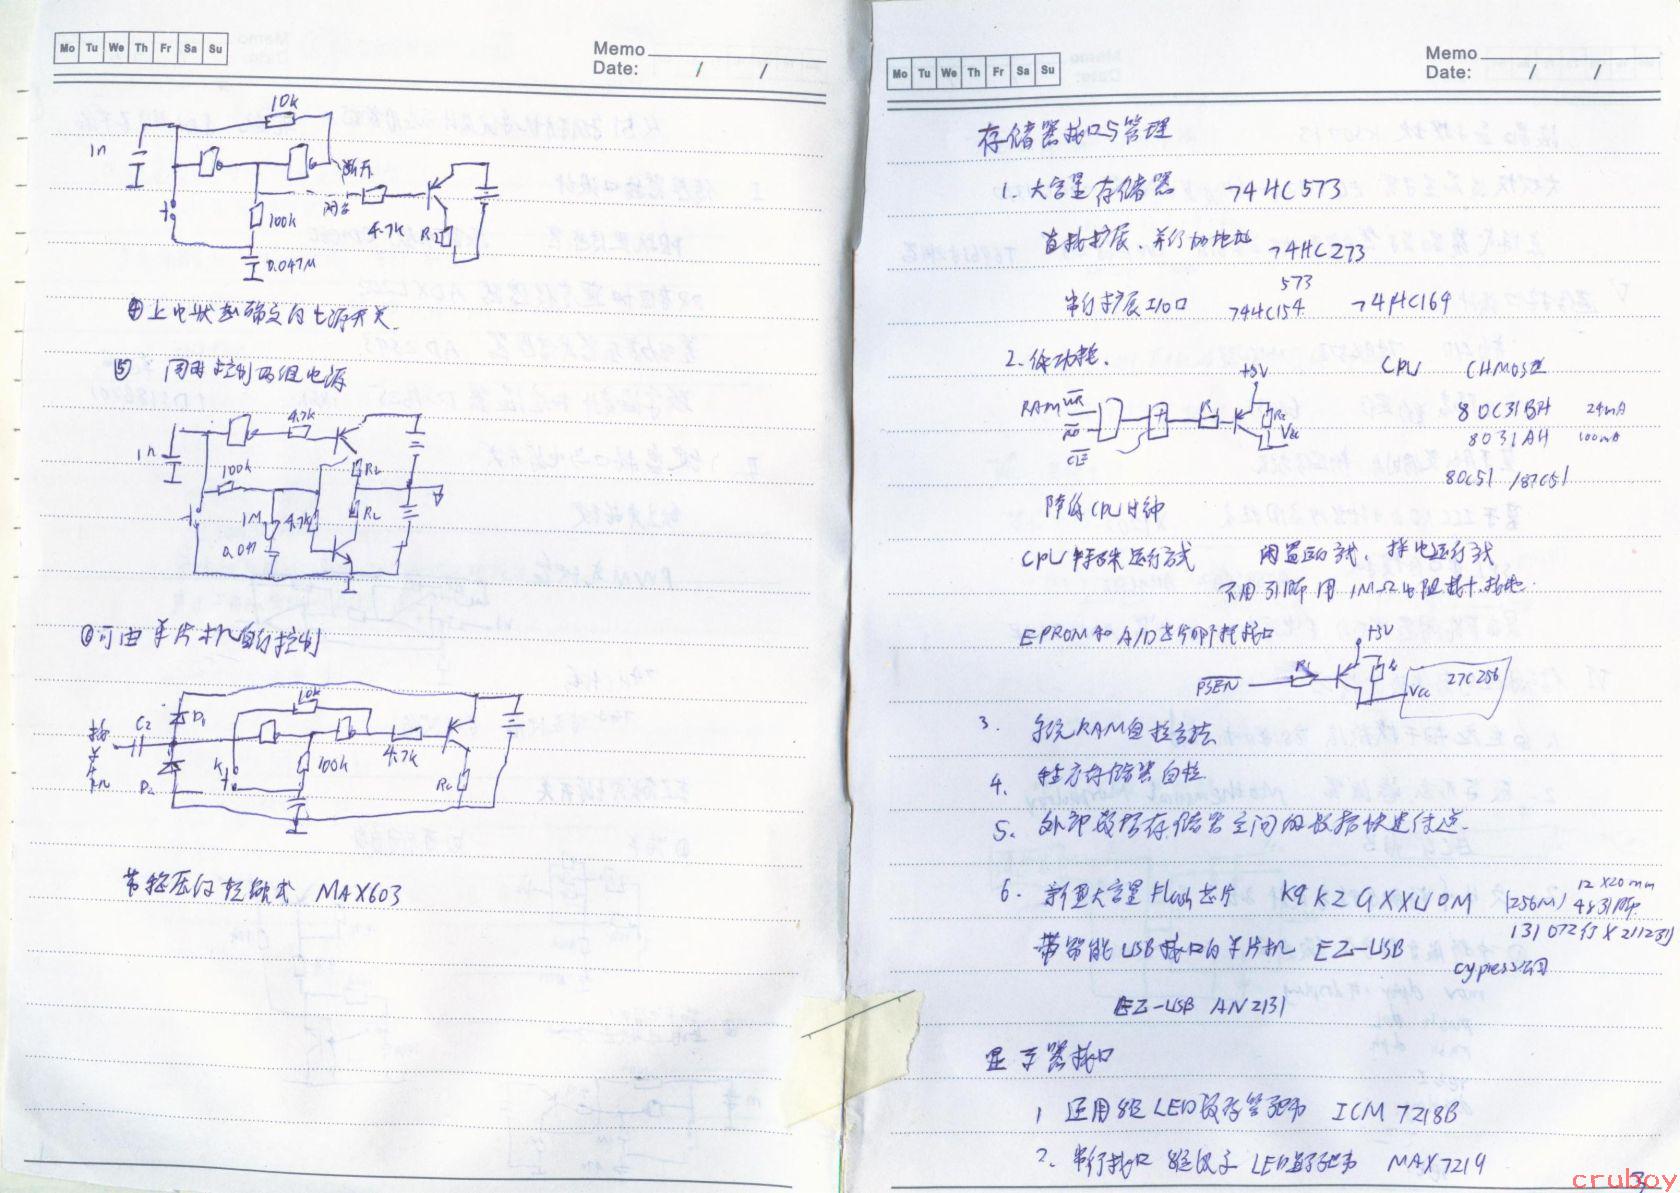 Mo Tu We Th Fr Sa Su
Memo
Date: / /
10k
1n
断开
闭合
100k
4.7k
RL
0.047M
④上电状态确定的电源开关.
⑤ 同时控制两组电源
4.7k
1n
100k
RL
1M
4.7k
RL
0.01
⑥可由单片机自行控制
10k
C2
D1
接
单
片
机
100k
4.7k
K
D2
RL
带稳压的轻触式 MAX603
Mo Tu We Th Fr Sa Su
Memo
Date: / /
存储器接口与管理
1. 大容量存储器 74HC573
直接扩展、并行加地址 74HC273
573
串行扩展I/O口 74HC154 74HC169
2. 低功耗.
CPU CHMOS型
+5V
RAM WR
RD
CE
Vcc
80C31BH 24mA
8031AH 100mA
80C51 /87C51
降低CPU时钟
CPU特殊运行方式 闲置运行方式、掉电运行方式
不用引脚用1MΩ电阻接+、接地.
EPROM和A/D芯片的接口
+5V
PSEN
Vcc 27C256
3. 系统RAM自检方法
4. 程序存储器自检
5. 外部数据存储器空间的数据快速传送.
6. 新型大容量Flash芯片 K9K2GXXU0M (256M) 48引脚
12×20mm
131072行×2112列
带智能USB接口的单片机 EZ-USB
cypress公司
EZ-USB AN2131
显示器接口
1 通用8位LED数码管驱动 ICM7218B
2. 串行接口 8位LED显示驱动 MAX7219
3
cruboy